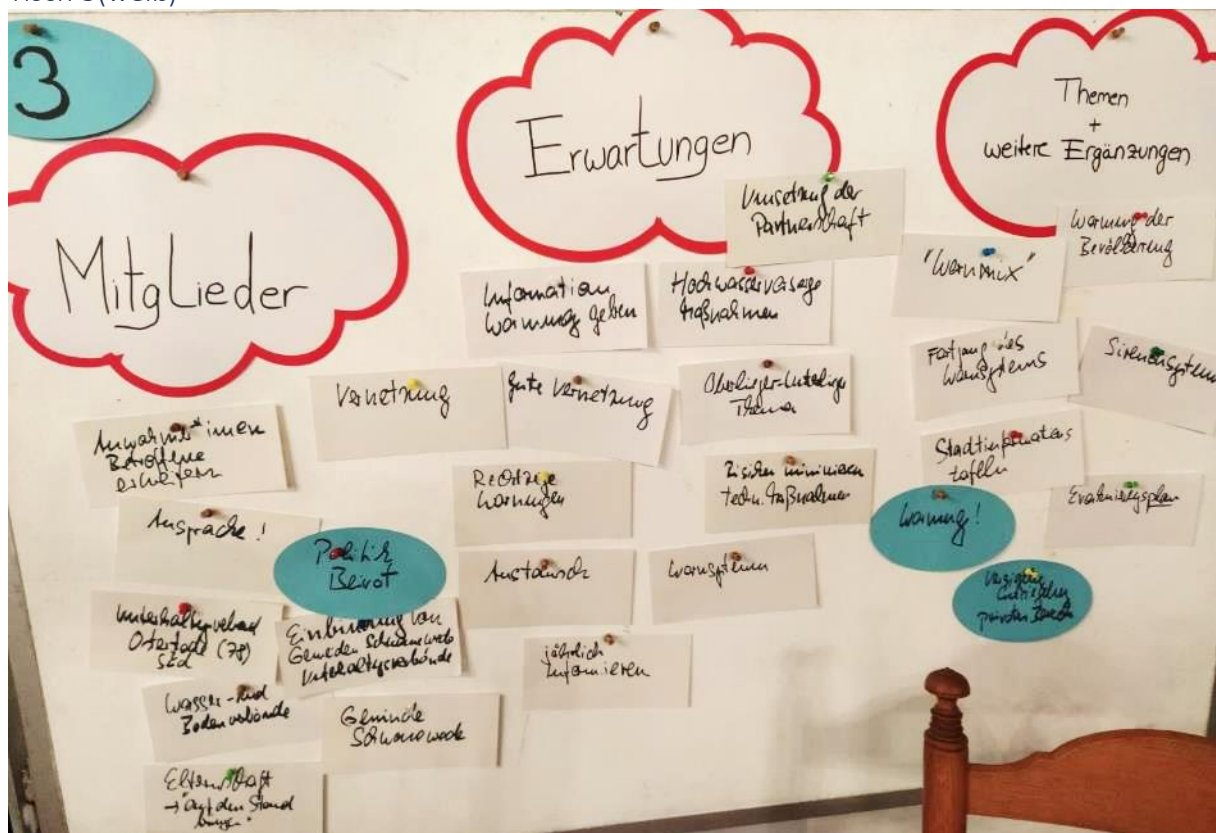 3
Mitglieder
Anwohner*innen
Betroffene
erweitern
Ansprache!
Politik
Beirat
Unterhaltungsverband
Osterstade (78)
Süd
Einbindung von
Gemeinden Schwanewede
Unterhaltungsverbände
Wasser- und
Bodenverbände
Gemeinde
Schwanewede
Elternschaft
→ "auf den Stand
bringen"
Erwartungen
Umsetzung der
Partnerschaft
Information
Warnung geben
Hochwasservorsorge
Maßnahmen
Vernetzung
gute Vernetzung
Oberlieger-Unterlieger
Thema
Rechtzeitige
Warnungen
Risiken minimieren
techn. Maßnahmen
Austausch
Warnsystem
jährlich
Informieren
Themen
+
weitere Ergänzungen
Warnung der
Bevölkerung
"Warnmix"
Fortgang des
Warnsystems
Sirenensystem
Stadtinformations
tafeln
Warnung!
Evakuierungsplan
privaten